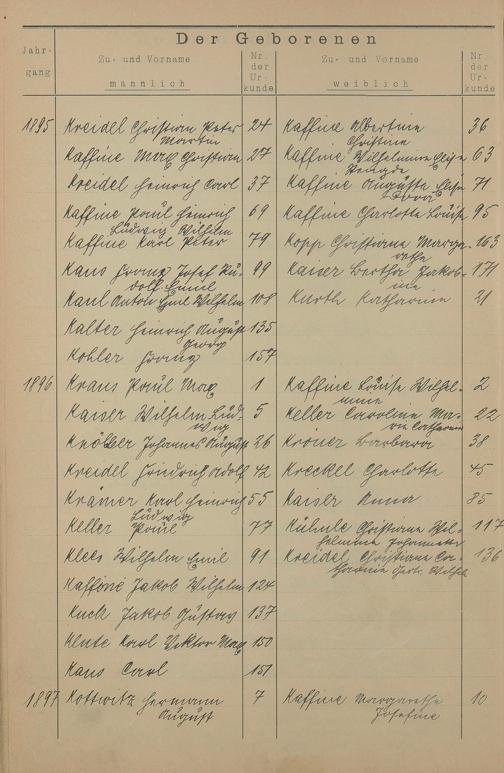 Der Geborenen
Jahr-
gang
Zu- und Vorname
männlich
Nr.
der
Ur-
kunde
Zu- und Vorname
weiblich
Nr.
der
Ur-
kunde
1895 Kreidel Christian Peter 24 Kaffine Albertine 36
Martin Christine
Kaffine Max Christian 27 Kaffine Wilhelmine Elise 63
Kreidel Heinrich Carl 37 Kaffine Auguste 71
Kaffine Paul Heinrich 69 Kaffine Charlotte Louise 95
Ludwig Wilhelm
Kaffine Karl Peter 79 Kopp Christiane Marga- 163
rethe
Kaus Franz Josef Ru- 99 Kaiser Bertha Jakob- 171
dolf Emil ine
Kaul Anton Emil Wilhelm 108 Kurth Katharina 21
Kalter Heinrich August 135
Georg
Kohler Franz 157
1896 Kraus Paul Max 1 Kaffine Louise Wilhel- 2
mine
Kaiser Wilhelm Lud- 5 Keller Caroline Ma- 22
wig rie Catharine
Johannes August 26 Kröner Barbara 38
Kreidel Friedrich Adolf 42 Kreckel Charlotte 45
Krämer Karl Heinrich 55 Kaiser Anna 85
Ludwig
Keller Paul 77 Christiane Wil- 117
helmine
Klees Wilhelm Emil 91 Kreidel Christiane Ca- 136
tharine
Kaffine Jakob Wilhelm 124
Kuch Jakob Gustav 137
Karl Viktor Max 150
Kaus Carl 151
1897 Kottwitz Hermann 7 Kaffine Margarethe 10
August Josefine